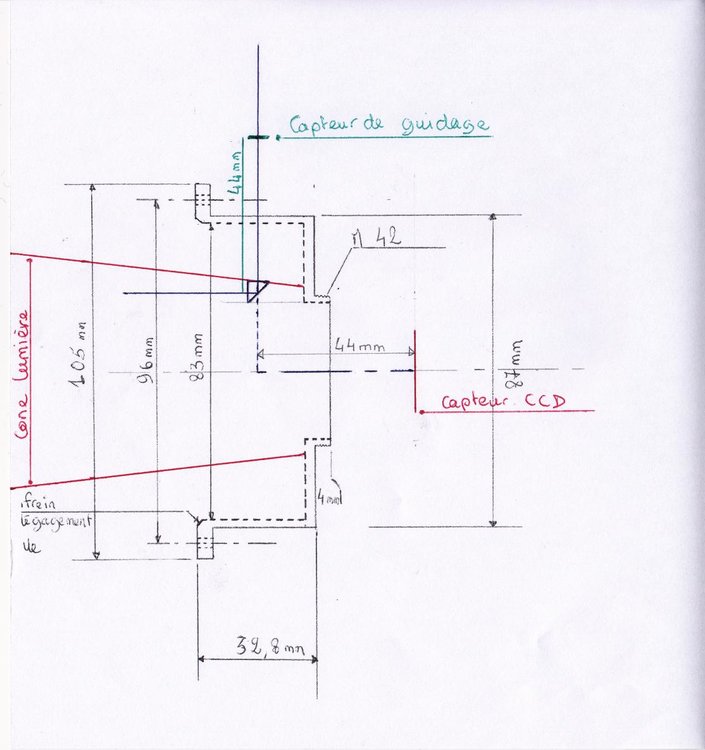 Capteur de guidage
44mm
M 42
Cone Lumière
105 mm
96mm
83mm
44mm
87mm
Capteur CCD
4mm
frein
dégagement
de
32,8mm